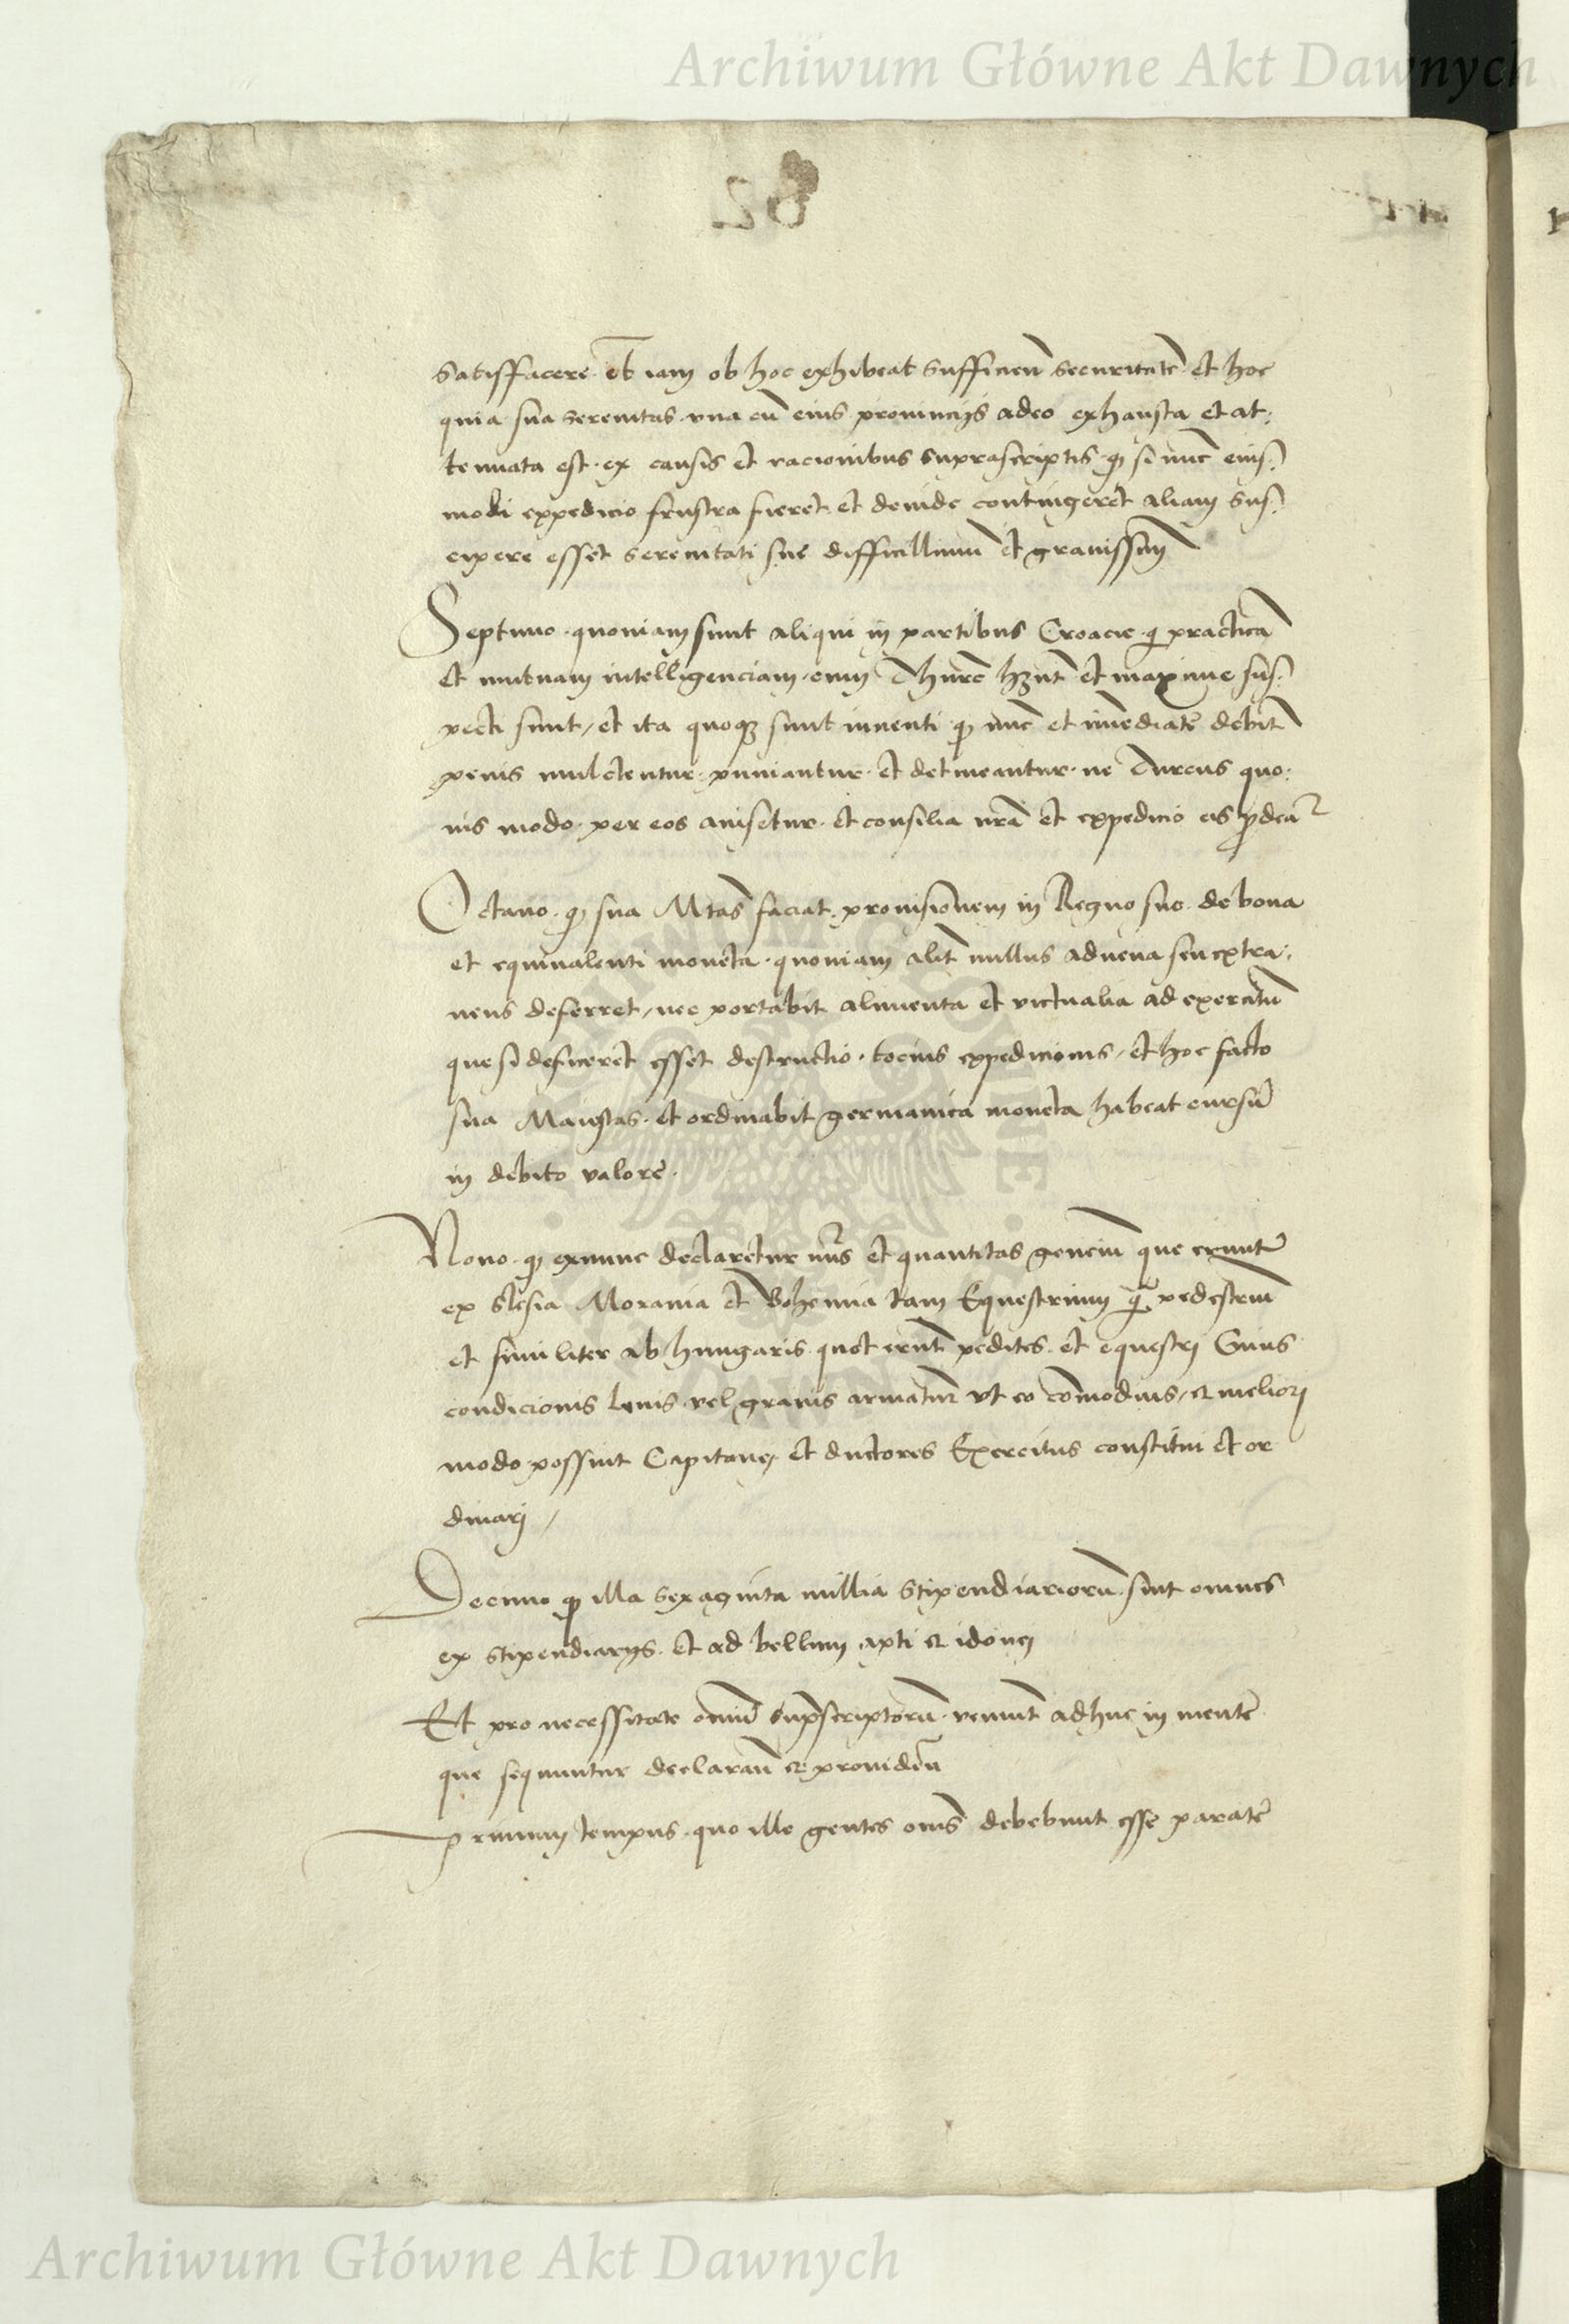 Archiwum Główne Akt Dawnych
satisffacere et iam ob hoc exhibeat sufficien̄ securitatē et hoc
quia sua serenitas una cū eius provincijs adeo exhausta et at:
tenuata est ex causis et racionibus suprascriptis qꝫ si nūc eius:
modi expedicio frustra fieret et deinde contingeret aliam sus:
cipere esset serenitati sue difficillimū et gravissim̄
Septimo quoniam sunt aliqui in partibus Croacie qi practicā
et mutuam intelligenciam cum Thurc̄ hn̄t et maxime sus:
pecti sunt / et ita quoqꝫ sunt inventi qꝫ nūc et īmediate debit̄
penis mulctentur puniantur et detineantur ne Turcus quo:
vis modo per eos avisetur et consilia nr̄a et expedicio eis
Octavo qꝫ sua Mtas faciat provisionem in Regno suo de bona
et equivalenti moneta quoniam alit̄ nullus advena seu extra:
neus deferret / nec portabit alimenta et victualia ad exercitū
que si deficeret esset destructio tocius expedicionis / et hoc facto
sua Maiestas et ordinabit germanica moneta habeat cursū
in debito valore
Nono qꝫ exnunc declaretur nūs et quantitas genciū que erunt
ex Slesia Moravia et Bohemia tam Equestrium qꝫ pedestriū
et similiter ab hungaris quot erūt pedites et equestrj Cuius
condicionis levis vel gravis armatur̄ ut eo cōmodius / et meliorj
modo possint Capitanej et ductores Exercitus constitui et or
dinarj /
Decimo qꝫ illa sexaginta millia stipendiariorū sint omnes
ex stipendiarijs et ad bellum apti et idonej
Et pro necessitate omniū supͣscriptorū veniūt adhuc in mentē
que sequuntur declaran̄ et providen̄
Primum tempus quo ille gentes om̄s debebunt esse parate
Archiwum Główne Akt Dawnych